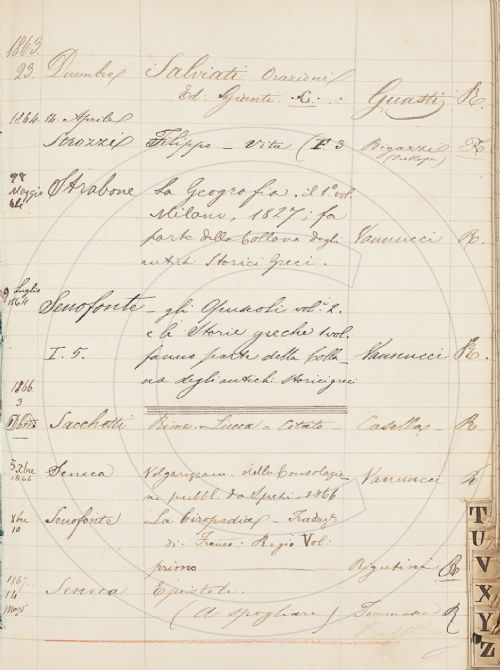 1863.
23. Dicembre Salviati Orazioni
Ed: Giunti Guasti R.
1864 14 Aprile
Strozzi Filippo - Vita (F. 3 Bigazzi R
28 Maggio 64 Strabone La Geografia. il 1° vol.
Milano, 1827; fa
parte della Collana degli Vannucci R.
antichi Storici Greci.
9 Luglio 1864 Senofonte - gli Opuscoli vol. 2.
e le Storie greche 1 vol.
I. 5. fanno parte della Colla- Vannucci R.
na degli antichi storici greci
1866.
3
8bre Sacchetti Rime - Lucca - Citato - Casella R
5 Xbre 1866 Seneca Volgarizzam. della Consolazio- Vannucci R
ne pubbl. da 1866
Xbre 10 Senofonte La Ciropedia - Traduz.
di Franco: Regio Vol:
primo Rigutini R
1867
14 Seneca Epistole
(da spogliare) Tommaseo R
T
U
V
X
Y
Z